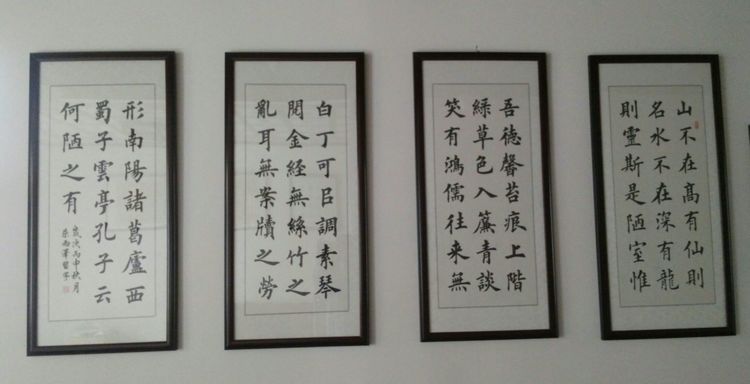 山不在高有仙則
名水不在深有龍
則靈斯是陋室惟
吾德馨苔痕上階
綠草色入簾青談
笑有鴻儒往来無
白丁可㠯調素琴
閱金經無絲竹之
亂耳無案牘之勞
形南陽諸葛廬西
蜀子雲亭孔子云
何陋之有
歲次丙申秋月